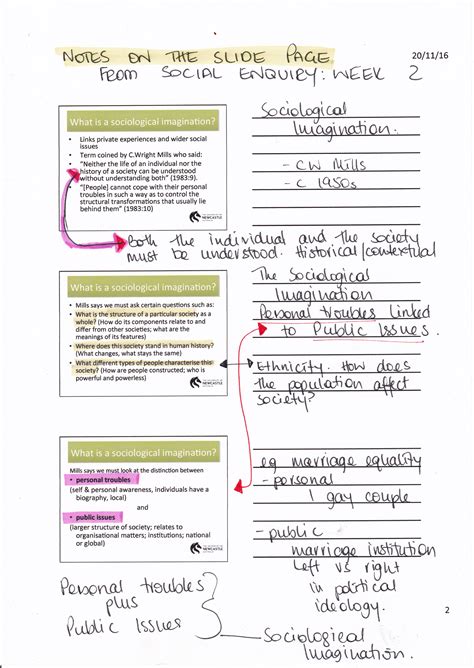 NOTES ON THE SLIDE PAGE
20/11/16
FROM SOCIAL ENQUIRY: WEEK 2
What is a sociological imagination?
• Links private experiences and wider social
issues
• Term coined by C.Wright Mills who said:
• "Neither the life of an individual nor the
history of a society can be understood
without understanding both" (1983:9).
• "[People] cannot cope with their personal
troubles in such a way as to control the
structural transformations that usually lie
behind them" (1983:10)
THE UNIVERSITY OF
NEWCASTLE
AUSTRALIA
Sociological
Imagination.
- CW Mills
- C 1950s
Both the individual and the society
must be understood. Historical/contextual
What is a sociological imagination?
• Mills says we must ask certain questions such as:
• What is the structure of a particular society as a
whole? (How do its components relate to and
differ from other societies; what are the
meanings of its features)
• Where does this society stand in human history?
(What changes, what stays the same)
• What different types of people characterise this
society? (How are people constructed; who is
powerful and powerless)
THE UNIVERSITY OF
NEWCASTLE
AUSTRALIA
The Sociological
Imagination
Personal troubles linked
to Public Issues.
Ethnicity. How does
the population affect
society?
What is a sociological imagination?
Mills says we must look at the distinction between
• personal troubles
(self & personal awareness, individuals have a
biography, local)
and
• public issues
(larger structure of society; relates to
organisational matters; institutions; national
or global)
THE UNIVERSITY OF
NEWCASTLE
AUSTRALIA
eg marriage equality
- personal
1 gay couple
- public
marriage institution
Left vs right
in political
ideology.
2
Personal troubles
plus
Public Issues
Sociological
Imagination.